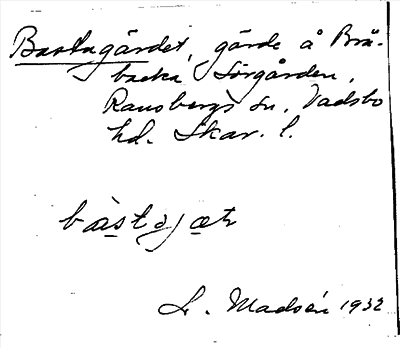 Bastugärdet, gärde å Brä-
backa Sörgården,
Ransbergs sn, Vadsbo
hd. Skar. l.
bàstəjæʈ
L. Madsén 1932